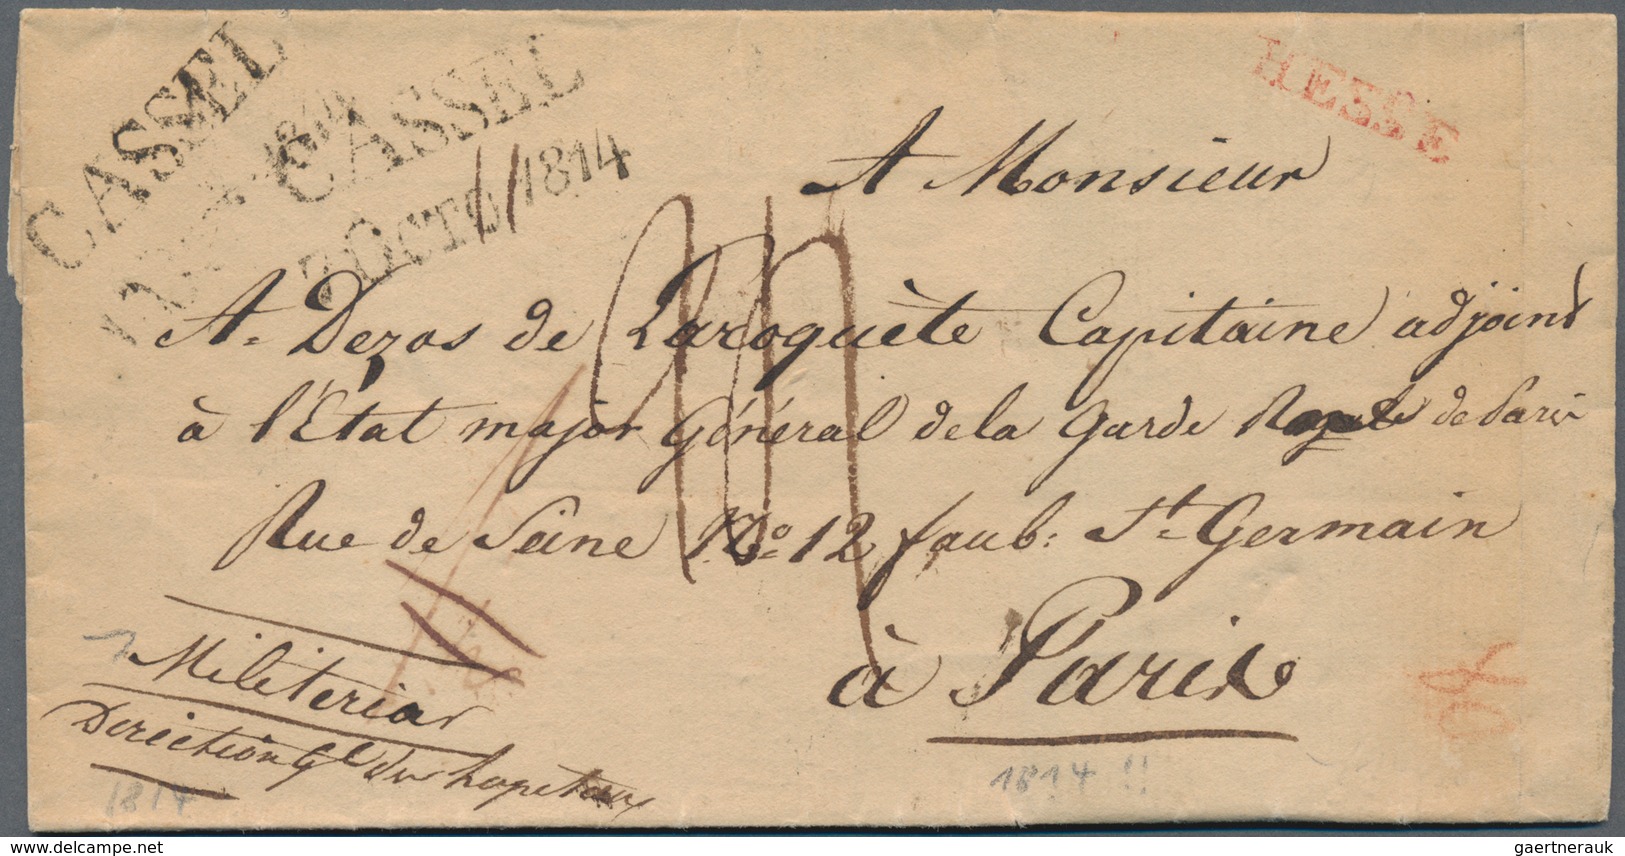 CASSEL
CASSEL
7 OCTO 1814
HESSE
A Monsieur
A. Dezos de Laroquète Capitaine adjoint
à l'Etat major Général de la Garde de Paris
Rue de Seine No. 12 faub: St. Germain
à Paris
Militeriar
Direction Gl. des hopetaux
1814
1814 !!
www.delcampe.net
gaertnerauk